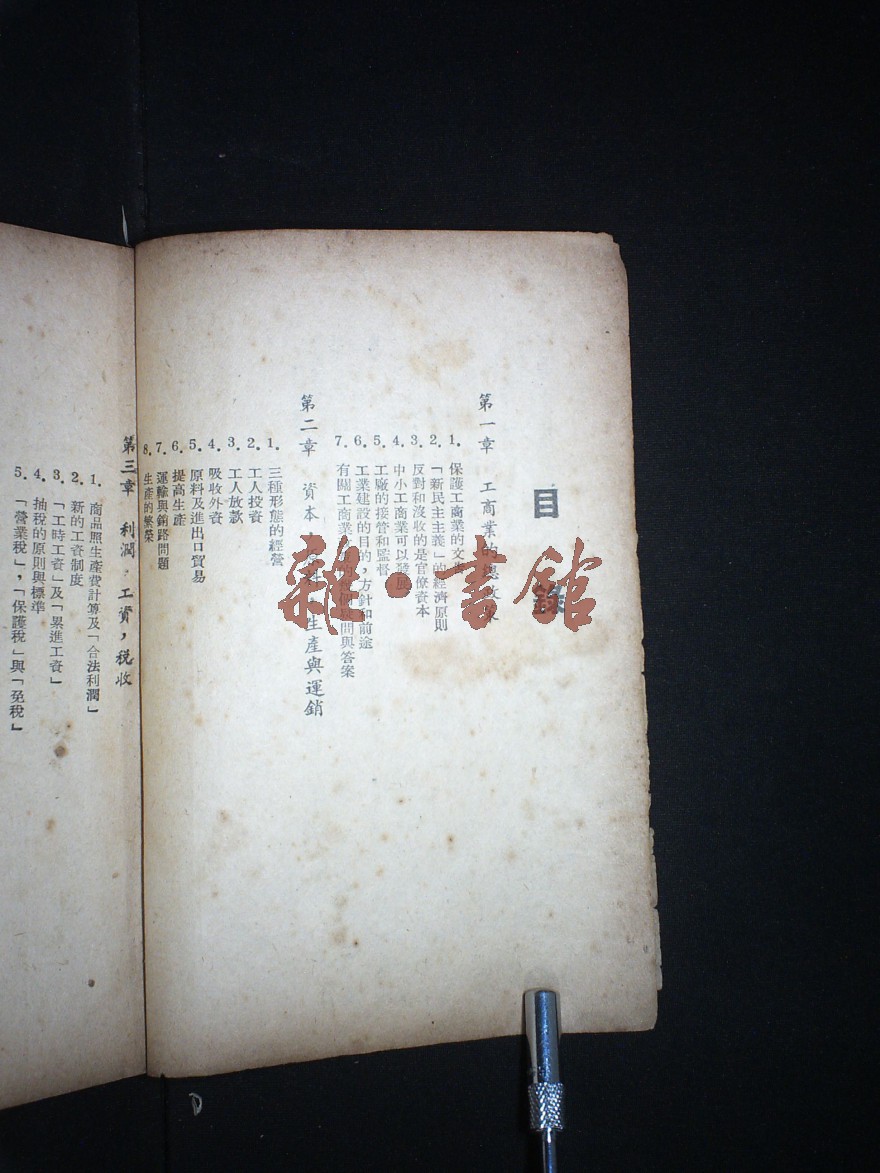 目錄
第一章 工商業的總政策
1. 保護工商業的文
2. 「新民主主義」的經濟原則
3. 反對和沒收的是官僚資本
4. 中小工商業可以發展
5. 工廠的接管和監督
6. 工業建設的目的，方針和前途
7. 有關工商業 問與答案
第二章 資本 生產與運銷
1. 三種形態的經營
2. 工人投資
3. 工人放款
4. 吸收外資
5. 原料及進出口貿易
6. 提高生產
7. 運輸與銷路問題
8. 生產的繁榮
第三章 利潤，工資，稅收
1. 商品照生產費計算及「合法利潤」
2. 新的工資制度
3. 「工時工資」及「累進工資」
4. 抽稅的原則與標準
5. 「營業稅」，「保護稅」與「免稅」
雜·書館